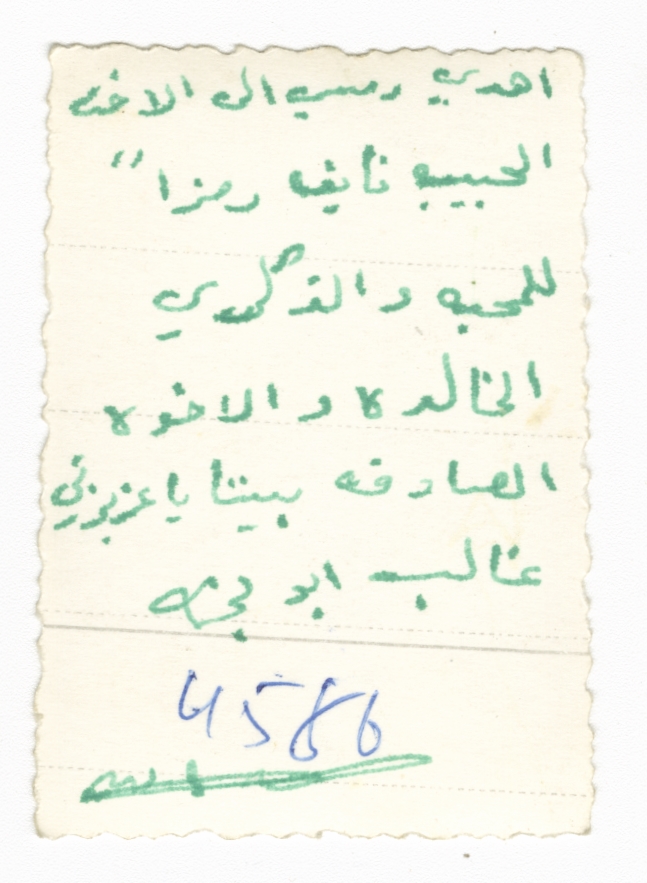 اهدي رسمي الى الاخ
الحبيب نايف رمزا"
للمحبه والذكرى
الخالده والاخوه
الصادقه بيننا يا عزيزي
غالب ابو
4586